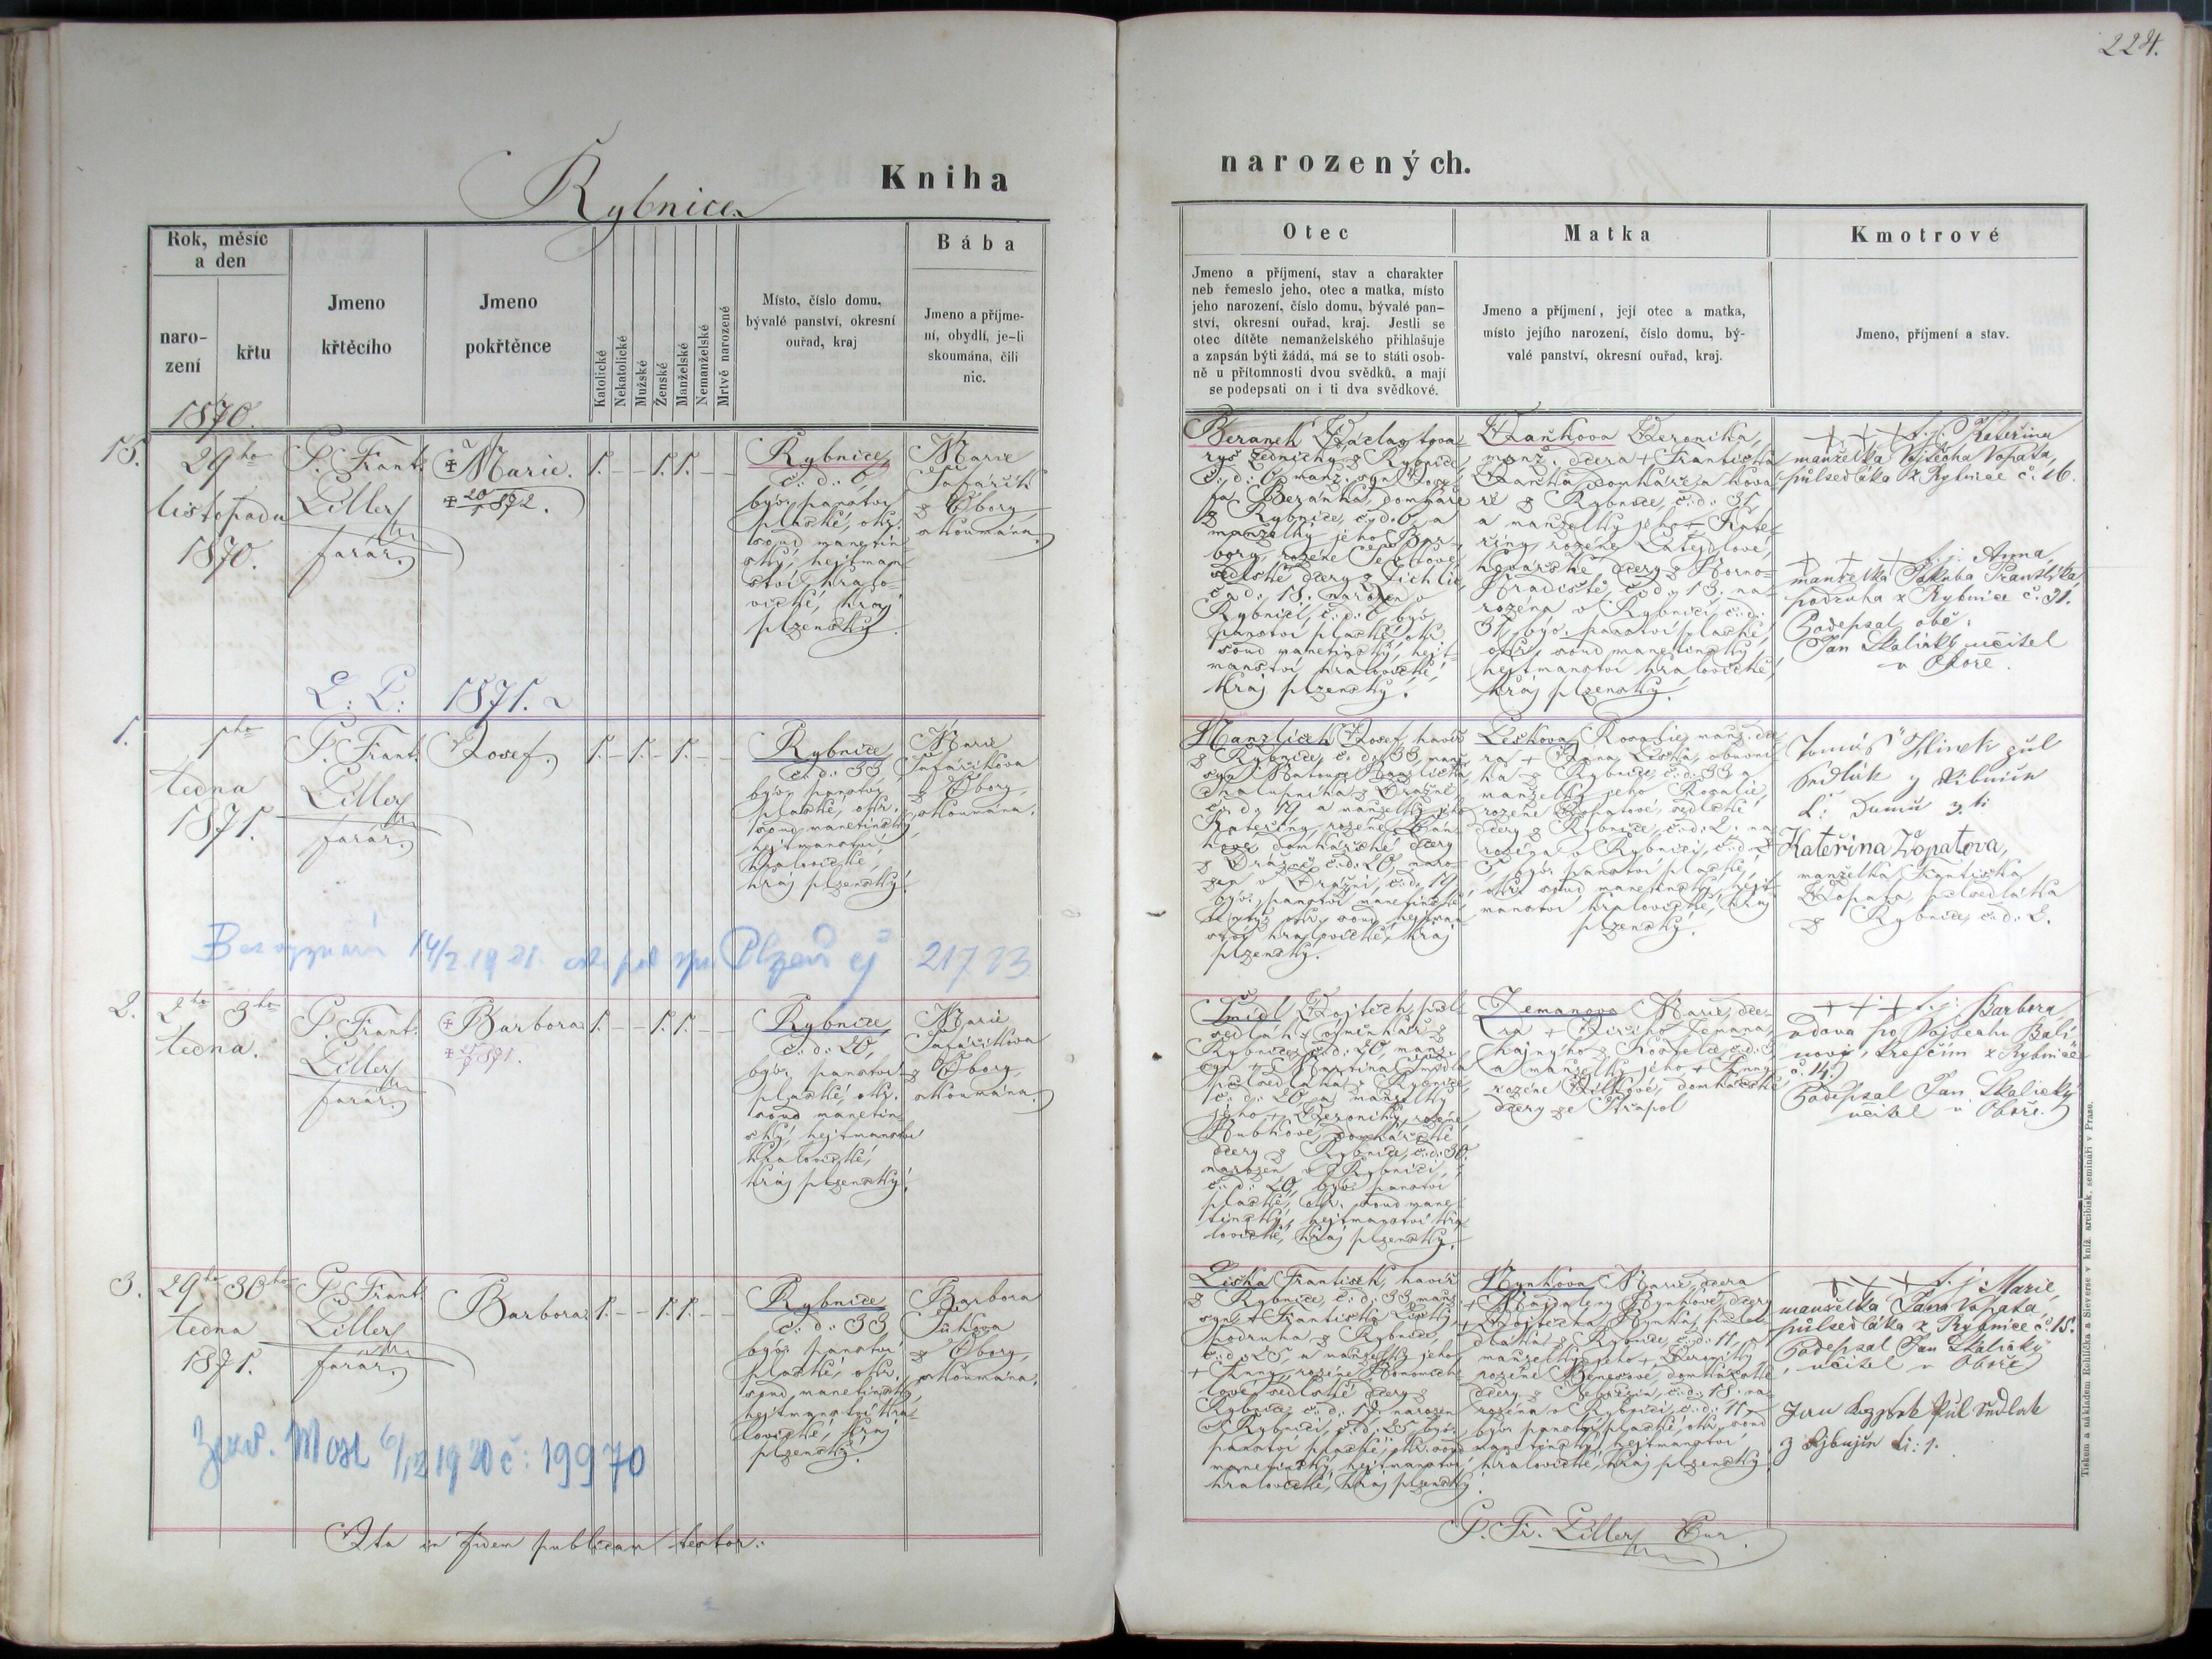 224.
Rybnice
Kniha
narozených.
Rok, měsíc
a den
naro-
zení
křtu
Jmeno
křtěcího
Jmeno
pokřtěnce
Katolické
Nekatolické
Mužské
Ženské
Manželské
Nemanželské
Mrtvě narozené
Místo, číslo domu,
bývalé panství, okresní
ouřad, kraj
Bába
Jmeno a příjme-
ní, obydlí, je-li
skoumána, čili
nic.
Otec
Jmeno a příjmení, stav a charakter
neb řemeslo jeho, otec a matka, místo
jeho narození, číslo domu, bývalé pan-
ství, okresní ouřad, kraj. Jestli se
otec dítěte nemanželského přihlašuje
a zapsán býti žádá, má se to státi osob-
ně u přítomnosti dvou svědků, a mají
se podepsati on i ti dva svědkové.
Matka
Jmeno a příjmení, její otec a matka,
místo jejího narození, číslo domu, bý-
valé panství, okresní ouřad, kraj.
Kmotrové
Jmeno, příjmení a stav.
1870.
15.
29ho
listopadu
1870.
P. Frant.
Liller
farář.
Marie.
20/1 872.
1. – – 1. 1. – –
Rybnice
č: d: 6
býv: panství
plaské, okr.
soud manetín-
ský, hejtman-
ství kralo-
vické, kraj
plzenský.
Marie
Šafařík
z Obory
skoumána.
Beránek Václav, tova-
ryš zednický z Rybnice
č: d: 6, manž. syn Jose-
fa Beránka, domkáře
z Rybnice, č: d: 6, a
manželky jeho Bar-
bory, rozené
selské dcery z Žichlic
č: d: 18. narozen v
Rybnici, č: d: 6, býv.
panství plaské, okr.
soud manetinský, hejt-
manství kralovické,
kraj plzenský.
Veronika,
manž. dcera + Františka
domkáře a kova-
ře z Rybnice, č: d: 31
a manželky jeho + Kate-
řiny, rozené
kovářské dcery z Horno-
Hradiště, č: d: 13. na-
rozena v Rybnici, č: d:
31, býv. panství plaské,
okr. soud manetinský,
hejtmanství kralovické,
kraj plzenský.
+ + + t. j. Kateřina
manželka Vojtěcha Vopata,
půlsedláka z Rybnice č. 16.
+ + + t. j. Anna,
manželka Jakuba Františka,
podruha z Rybnice č. 31.
Podepsal obě:
Jan Skalický učitel
v Oboře.
L: P: 1871.
1.
1ho
ledna
1871.
P. Frant.
Liller
farář.
Josef.
1. – 1. – 1. – –
Rybnice
č: d: 33
býv: panství
plaské, okr.
soud manetinský,
hejtmanství
kralovické,
kraj plzenský.
Marie
Šafaříkova
z Obory,
skoumána.
Hanzlíček Josef, havíř
z Rybnice, č: d: 33, manž.
syn Matouše Hanzlíčka,
chalupníka z Dražně,
č: d: 19 a manželky jeho
Kateřiny, rozené
domkářské dcery
z Dražně č: d: 20, naro-
zen v Dražni, č: d: 19,
býv: panství manetinské,
okr. soud, hejtman-
ství kralovické, kraj
plzenský.
Leskova Rosalie, manž. dce-
ra + Jana Leska, obuvní-
ka z Rybnice, č: d: 33 a
manželky jeho Rosalie,
rozené Vopatové, selské
dcery z Rybnice, č: d: 2. na-
rozena v Rybnici, č: d:
5, býv. panství plaské,
okr. soud manetinský, hejt-
manství kralovické, kraj
plzenský.
Tomáš Hlinek půl
Sedlák z Ribnice
Kateřina Vopatova,
manželka Františka
Vopata, půlsedláka
z Rybnice, č: d: 2.
Bez vyznání 14/2. 1921. Plzeň čj 21723
2.
2ho
3ho
ledna.
P. Frant.
Liller
farář.
Barbora
1. – – 1. 1. – –
Rybnice
č: d: 20,
býv: panství
plaské, okr.
soud manetín-
ský, hejtmanství
kralovické,
kraj plzenský.
Marie
Šafaříkova
z Obory,
skoumána.
Šmídl Vojtěch, půl-
sedlák
Rybnice, č: d: 20, manž.
syn + Martina Šmídla
půlsedláka z Rybnice,
č: d: 20 a manželky
jeho + Veroniky, rozené
domkářské
dcery z Rybnice, č: d: 30.
narozen v Rybnici,
č: d: 20, býv: panství
plaské, okr. soud mane-
tinský, hejtmanství kra-
lovické, kraj plzenský.
Zemanova Marie, dce-
ra + Jiřího Zemana,
hajného z
a manželky jeho + Anny
rozené domkářské
dcery ze Střapol
+ + + t. j. Barbora,
vdova po Vojtěchu Balí-
novi, krejčím z Rybnice
č. 14.
Podepsal Jan Skalický
učitel v Oboře.
3.
29ho
30ho
ledna
1871.
P. Frant.
Liller
farář.
Barbora
1. – – 1. 1. – –
Rybnice
č: d: 33
býv: panství
plaské, okr.
soud manetinský,
hejtmanství kra-
lovické, kraj
plzenský.
Barbora
z Obory,
skoumána.
Liska František, havíř
z Rybnice, č: d: 33 manž.
syn + Františka Lisky,
podruha z Rybnice,
č: d: 25, a manželky jeho
+ Anny, rozené
selské dcery z
Rybnice č: d: 17. narozen
v Rybnici, č: d: 25, býv.
panství plaské, okr. soud
manetinský, hejtmanství
kralovické, kraj plzenský.
Hynkova Marie, dcera
+ Magdaleny Hynkové, dcery
+ Vojtěcha Hynka, půlse-
dláka z Rybnice, č: d: 11, a
manželky jeho + Veroniky
rozené Benešové, domkářské
dcery z Nebřezin, č: d: 18. na-
rozena v Rybnici, č: d: 11,
býv: panství plaské, okr. soud
manetinský, hejtmanství
kralovické, kraj plzenský.
+ + + t. j. Marie,
manželka Jana Vopata,
půlsedláka z Rybnice č. 15.
Podepsal Jan Skalický
učitel v Oboře
Jan půl Sedlak
Most 6/12 1920 č: 19970
Ita in fidem publicam testor:
P. Fr. Liller Cur.
Tiskem a nákladem Rohlíčka a Sieverse v kníž. arcibisk. semináři v Praze.